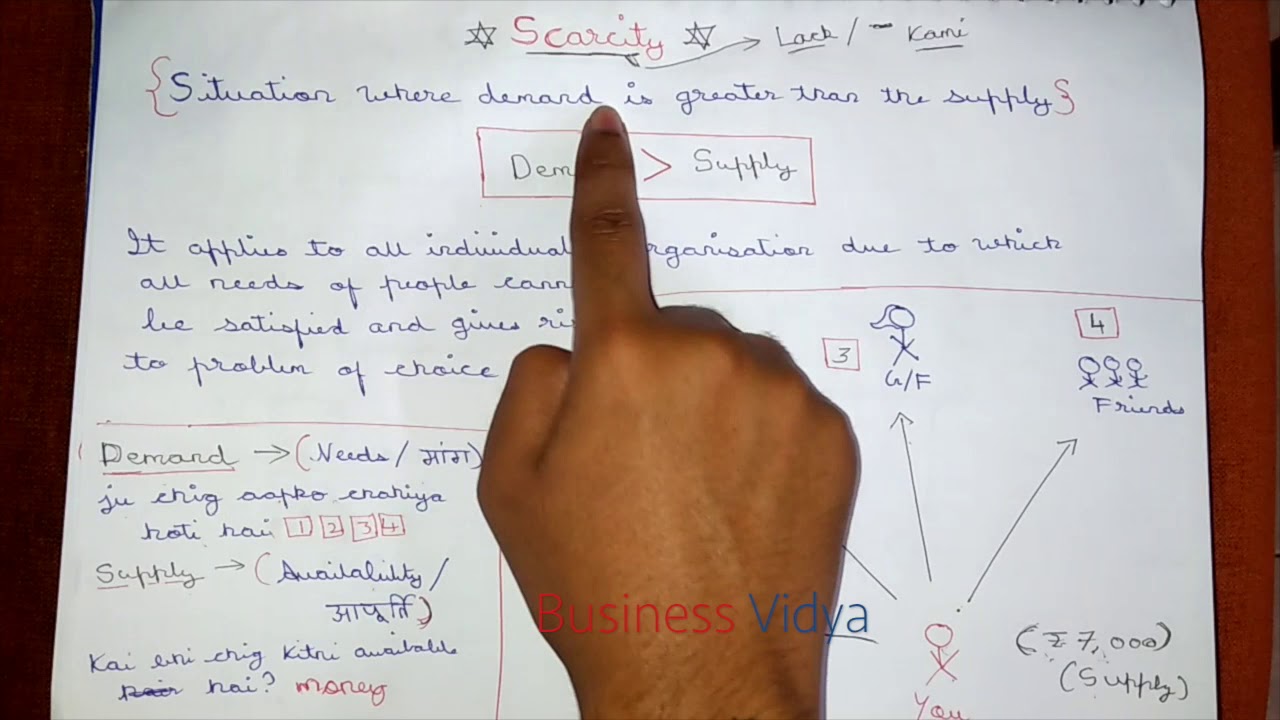 ✡ Scarcity ✡ → Lack / - Kami
{Situation where demand is greater than the supply}
Dem > Supply
It applies to all individual rganisation due to which
all needs of people cann
be satisfied and gives ri
to problem of choice
3
4
G/F
Friends
Demand → (Needs / मांग)
ju chig aapko chahiya
hoti hai 1 2 3 4
Supply → (Availability /
आपूर्ति)
Kai chig kitni available
hai? money
Business Vidya
You
(₹7,000)
(Supply)